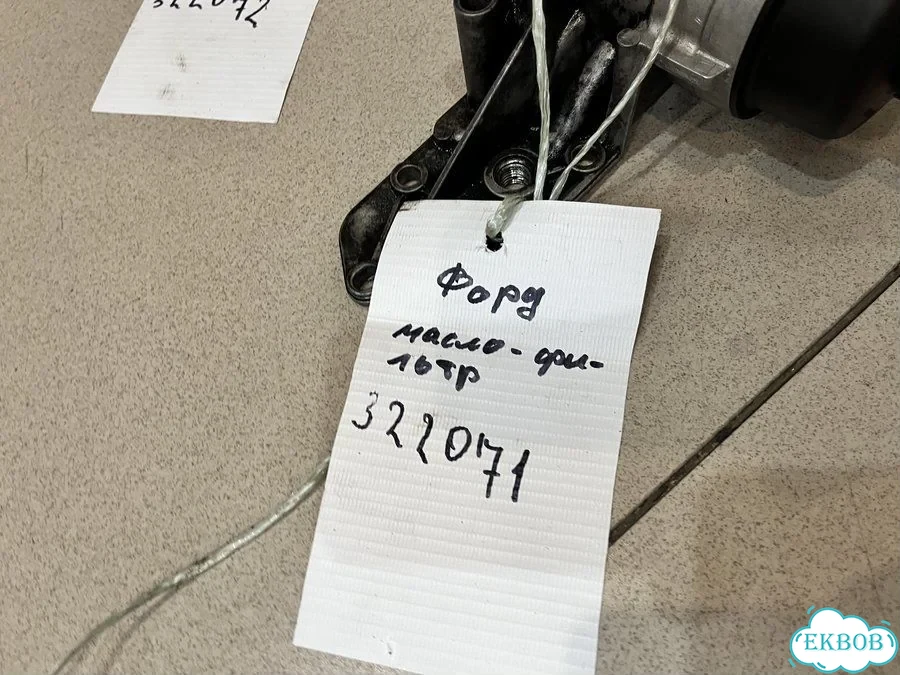 322072
Форд
масло-фи-
льтр
322071
EKBOB